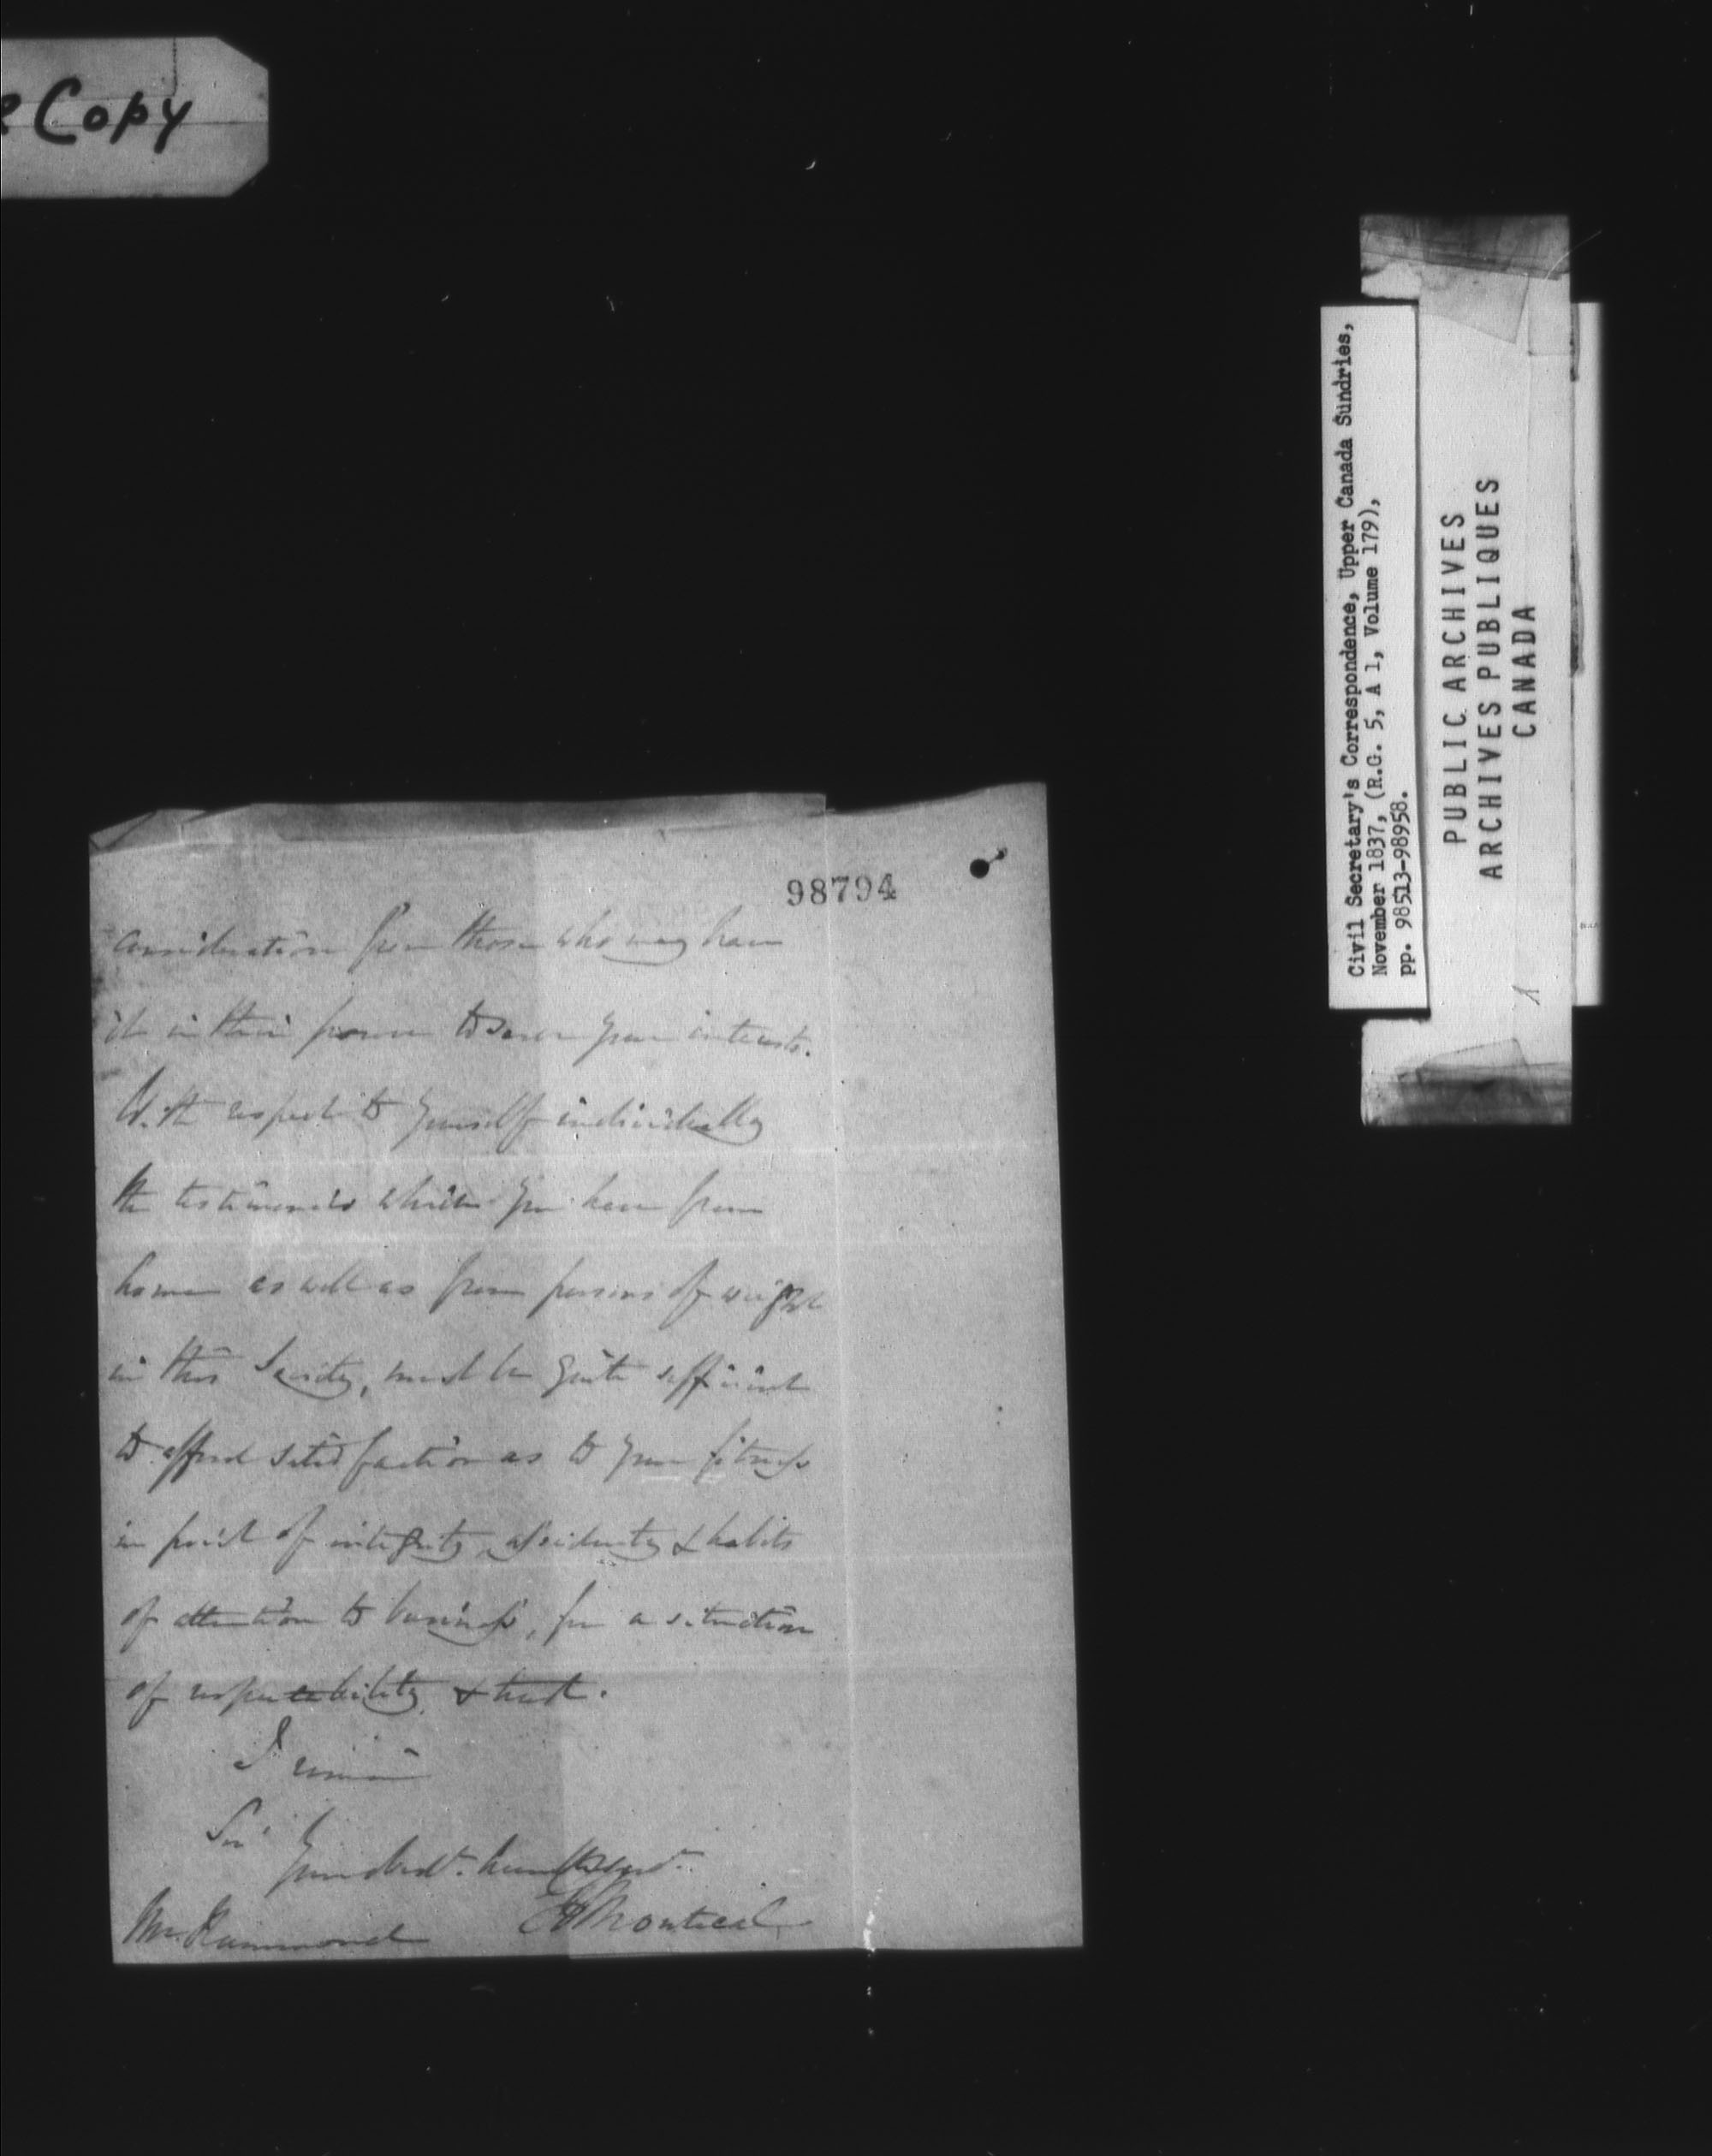 e Copy
98794
consideration from those who may have
it in their power to serve your interests.
With respect to yourself individually
the testimonies which you have from
home as well as from persons of weight
in this Society, must be quite sufficient
to afford satisfaction as to your fitness
in point of integrity, assiduity & habits
of attention to business, for a situation
of respectability & trust.
I remain
Sir
Your obedt. humble Servt.
Montreal
Mr. Hammond
Civil Secretary's Correspondence, Upper Canada Sundries,
November 1837, (R.G. 5, A 1, Volume 179),
pp. 98513-98958.
PUBLIC ARCHIVES
ARCHIVES PUBLIQUES
CANADA